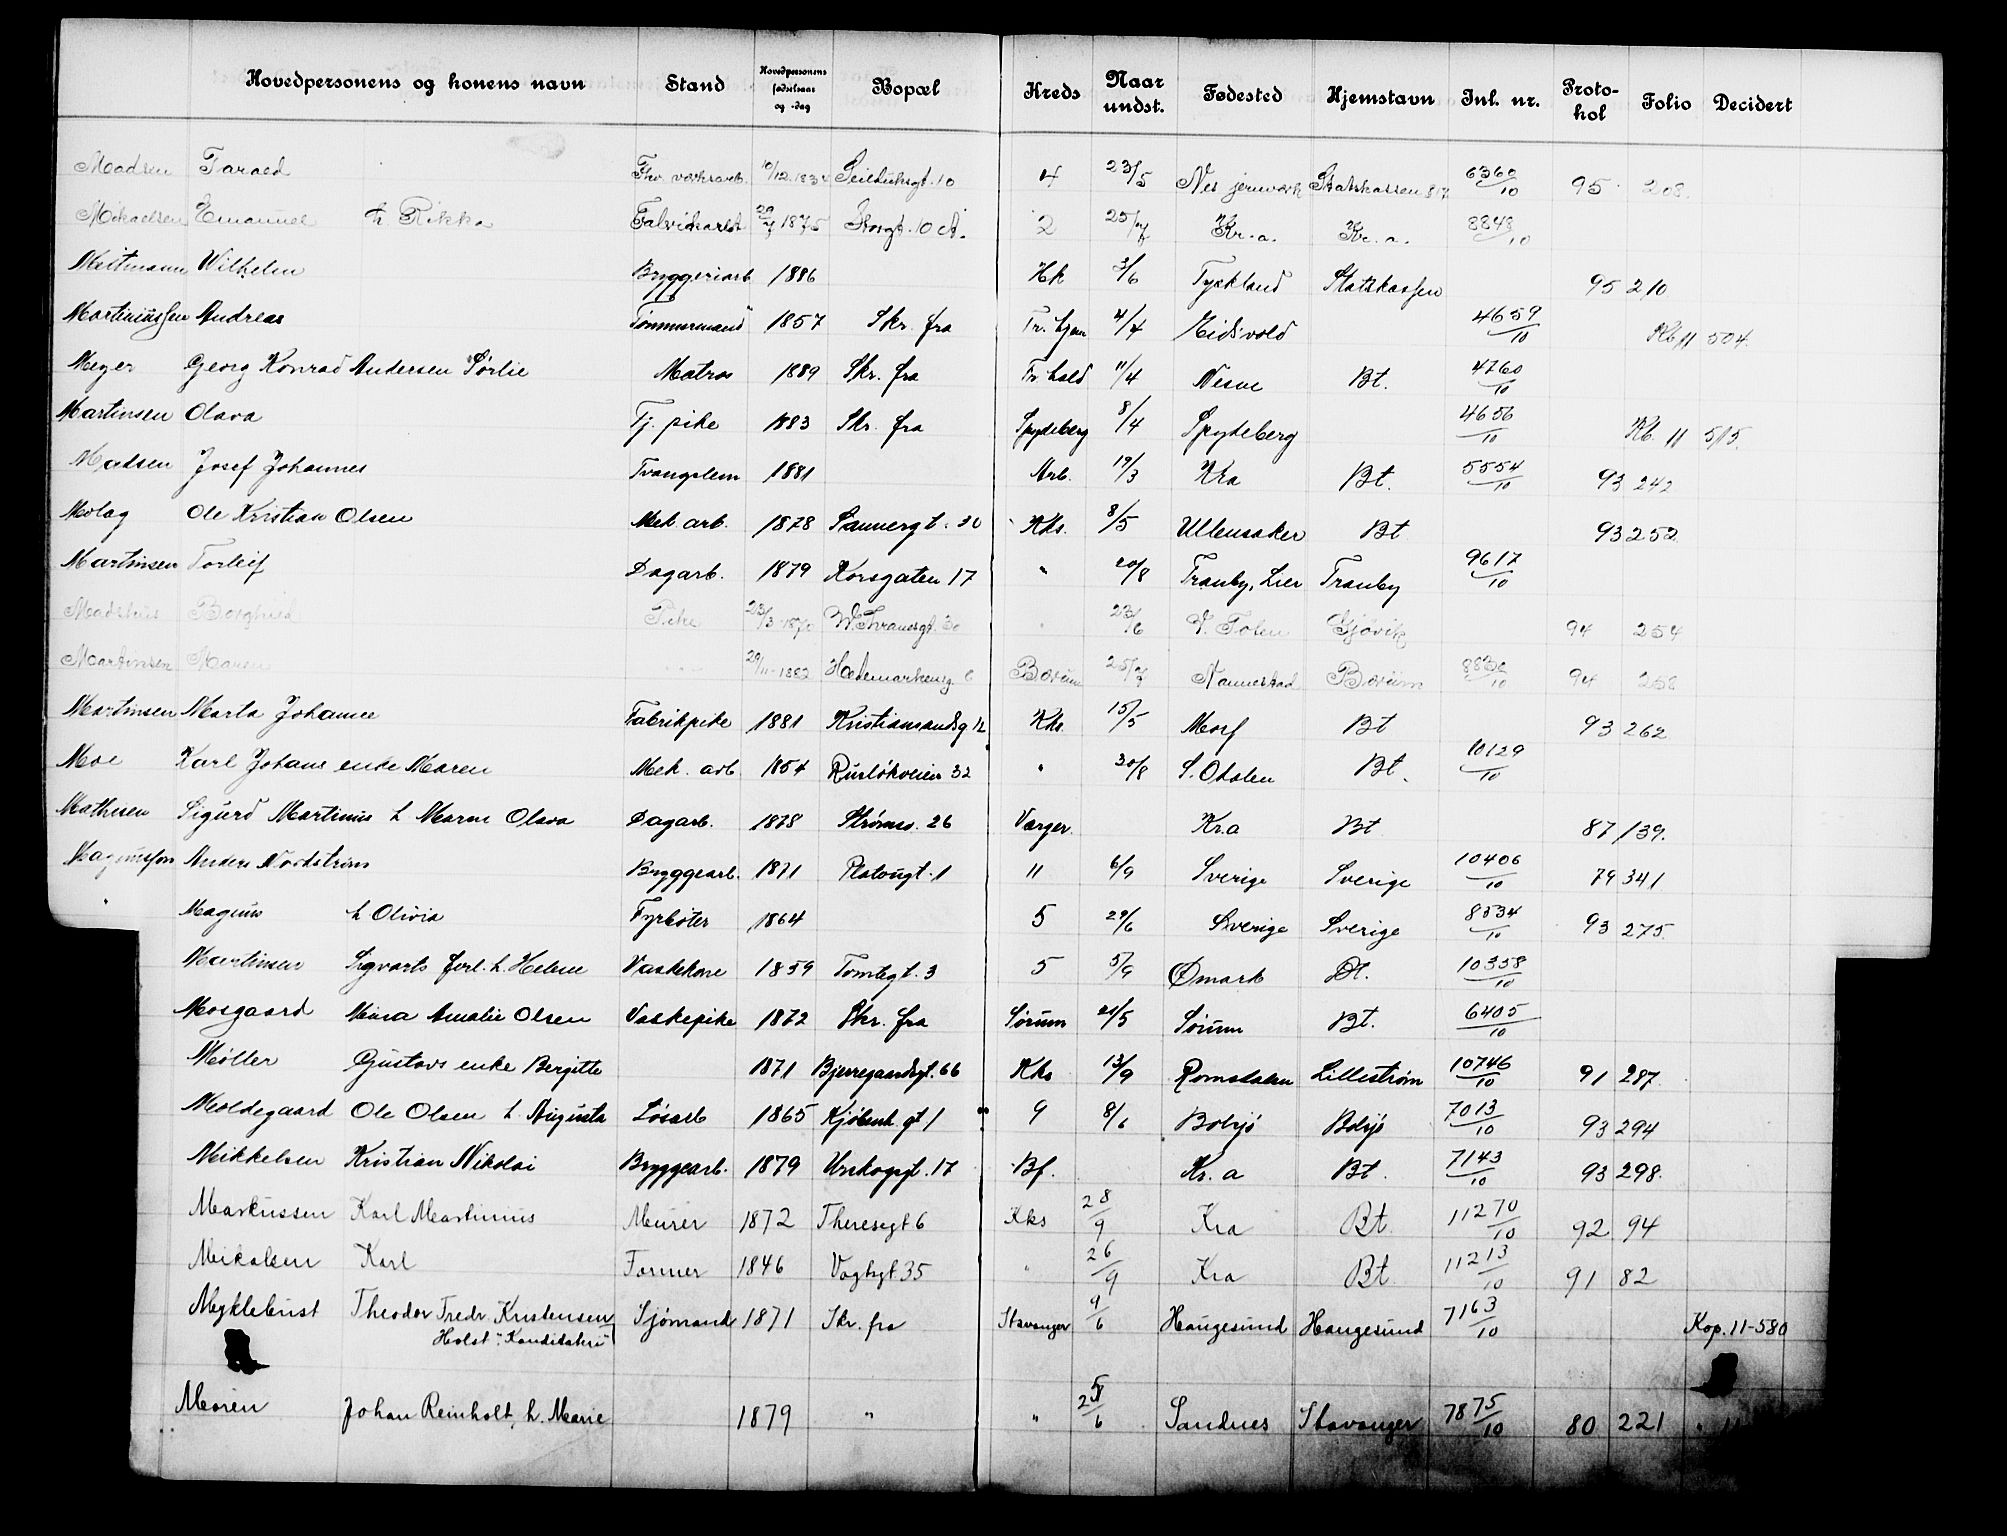 Hovedpersonens og konens navn Stand Hovedpersonens fødselsaar og -dag Bopæl Kreds Naar undst. Fødested Hjemstavn Inl. nr. Protokol Folio Decidert
Madsen Taraed Fhv. verksarb. 10/12 1834 Seilduksgt. 10 4 23/5 Nes jernverk Statskassen 6360/10 95 208
Mikaelsen Emanuel h Rikka 29/7 1875 Storgt. 10 A. 2 25/7 Kr.a. Kr.a. 8848/10
Wilhelm Bryggeriarb 1886 Hk 3/6 Tyskland Statskassen 95 210
Martiniussen Andreas Tømmermand 1857 Skr. fra Tr.hjem 4/4 Eidsvold 4659/10 Kb 11 504.
Meyer Georg Konrad Andersen Sørlie Matros 1889 Skr. fra Fr.hald 11/4 Bt. 4760/10
Martinsen Olava Tj. pike 1883 Skr. fra Spydeberg 8/4 Spydeberg 4656/10 Kb. 11 515.
Madsen Josef Johannes Tvangslem 1881 Arb. 19/3 Kra Bt. 5554/10 93 242
Molag Ole Kristian Olsen Mek. arb. 1878 Sannergt. 30 Kks. 8/5 Ullensaker Bt 93 252
Martinsen Torleif Dagarb. 1879 Korsgaten 17 " 20/8 Tranby, Lier Tranby 9617/10
Madshus Borghild Pike 23/3 1870 W. Thranesgt. 30 " 23/6 V. Toten Gjøvik 94 254
Martinsen Maren 29/11-1882 Hedemarkensg. 6 Bærum 25/7 Nannestad Bærum 8830/10 94 258
Martinsen Marta Johanne Fabrikpike 1881 Kristiansandsg 12 Kks. 15/5 Bt 93 262
Moe Karl Johans enke Maren Mek. arb 1854 Ruseløkveien 32 " 30/8 S. Odalen Bt. 10129/10
Mathisen Sigurd Martinius h Maren Olava Dagarb. 1878 Strømsv. 26 Varger Kra Bt 87 139.
Magnusson Anders Nordstrøm Bryggearb. 1871 Platougt. 1 11 6/9 Sverige Sverige 10406/10 79 341
Magnus h Olivia Fyrbøter 1864 5 29/6 Sverige Sverige 8534/10 93 275.
Martinsen Sigvarts forl. h. Helene Vaskekone 1859 Tomtegt. 3 5 5/9 Ømark Bt. 10358/10
Mosgaard Mina Amalie Olsen Vaskepike 1872 Skr. fra Sørum 21/5 Sørum Bt. 6405/10
Møller Gustavs enke Bergitte 1871 Bjerregaardsgt. 66 Kks 13/9 Romsdalen Lillestrøm 10746/10 91 287.
Moldegaard Ole Olsen h. Augusta Løsarb 1865 Kjøbenh. gt 1 9 8/6 Bolsjø Bolsjø 7013/10 93 294
Mikkelsen Kristian Nikolai Bryggearb. 1879 Urskogsgt. 17 Bf. Kr.a Bt. 7143/10 93 298.
Markussen Karl Martinius Murer 1872 Theresegt 6 Kks 28/9 Kra Bt. 11270/10 92 94
Mikalsen Karl Former 1846 Vogtsgt 35 " 26/9 Kra Bt 11213/10 91 82
Myklebust Theodor Fredr. Kristensen Sjømand 1871 Skr. fra Stavanger 9/6 Haugesund Haugesund 7163/10 Kop. 11-580
Holst
Moren Johan Reinholt, h. Marie 1879 " " 25/6 Sandnes Stavanger 7875/10 80 221 "